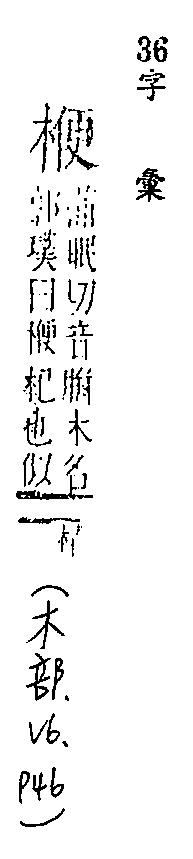 36字彙
楩
蒲眠切音騈木名
郭璞曰楩杞也似
梓
(木部.
V6、
P46)